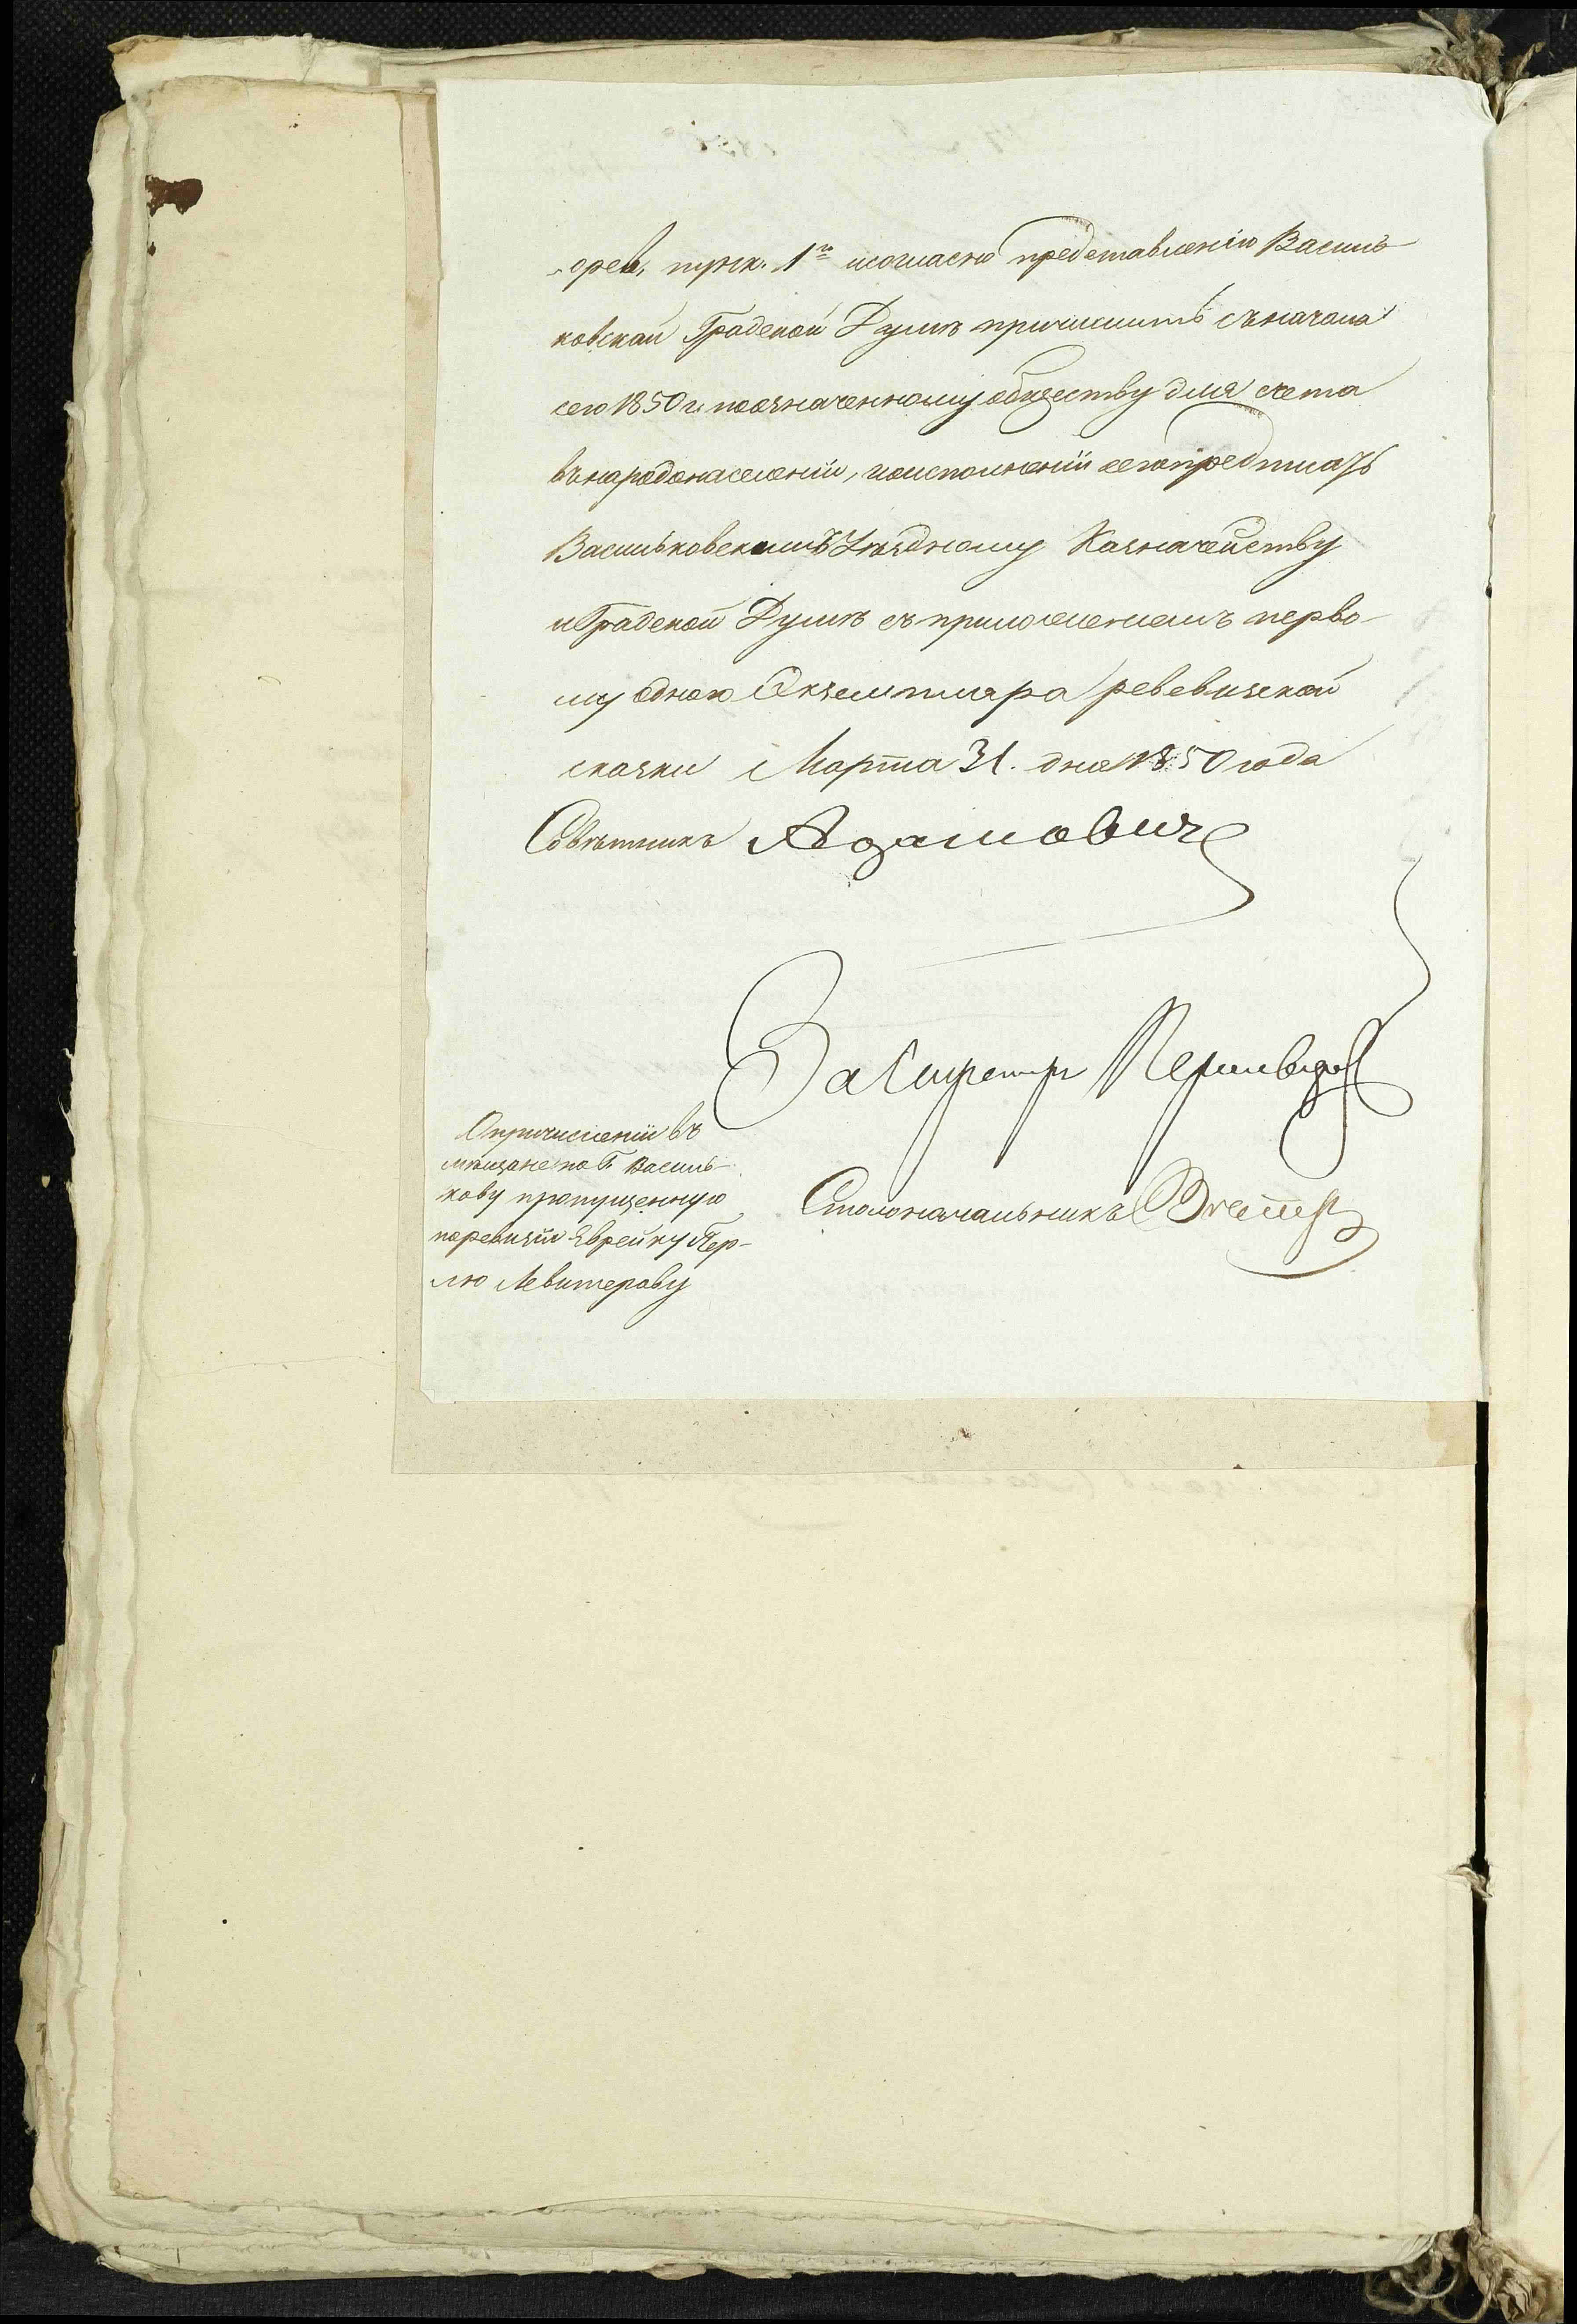 орев, пунк. 1й исогласно представленію Василь-
ковской Градской Думы причислить съначала
сего 1850 г. поозначенному обществу для счета
въ народонаселеніи, иоисполненіи сего предписать
Васильковскимъ Уѣздному Казначейству
и Градской Думѣ съ приложеніемъ перво-
му одного Экземпляра ревевизской
сказки Марта 31. дня 1850 года
Совѣтникъ Адамович
За Секретаря
Столоначальникъ
О причисленіи въ
мѣщане по г. Василь-
кову пропущенную
поревизіи Еврейку Пер-
лю Левитерову